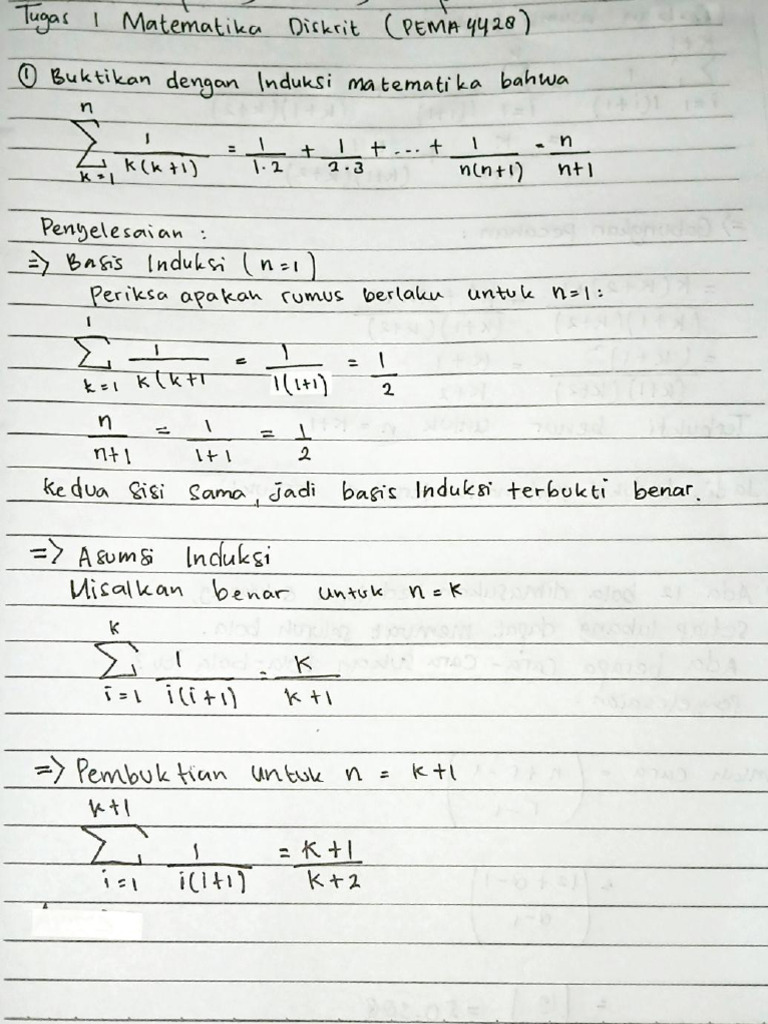 Tugas 1 Matematika Diskrit (PEMA4428)
① Buktikan dengan Induksi matematika bahwa
n
∑ 1/k(k+1) = 1/1·2 + 1/2·3 + ... + 1/n(n+1) = n/n+1
k=1
Penyelesaian :
=> Basis Induksi (n=1)
Periksa apakah rumus berlaku untuk n=1:
1
∑ 1/k(k+1 = 1/1(1+1) = 1/2
k=1
n/n+1 = 1/1+1 = 1/2
Kedua sisi sama, jadi basis Induksi terbukti benar.
=> Asumsi Induksi
Misalkan benar untuk n = k
k
∑ 1/i(i+1) = k/k+1
i=1
=> Pembuktian untuk n = k+1
k+1
∑ 1/i(i+1) = k+1/k+2
i=1